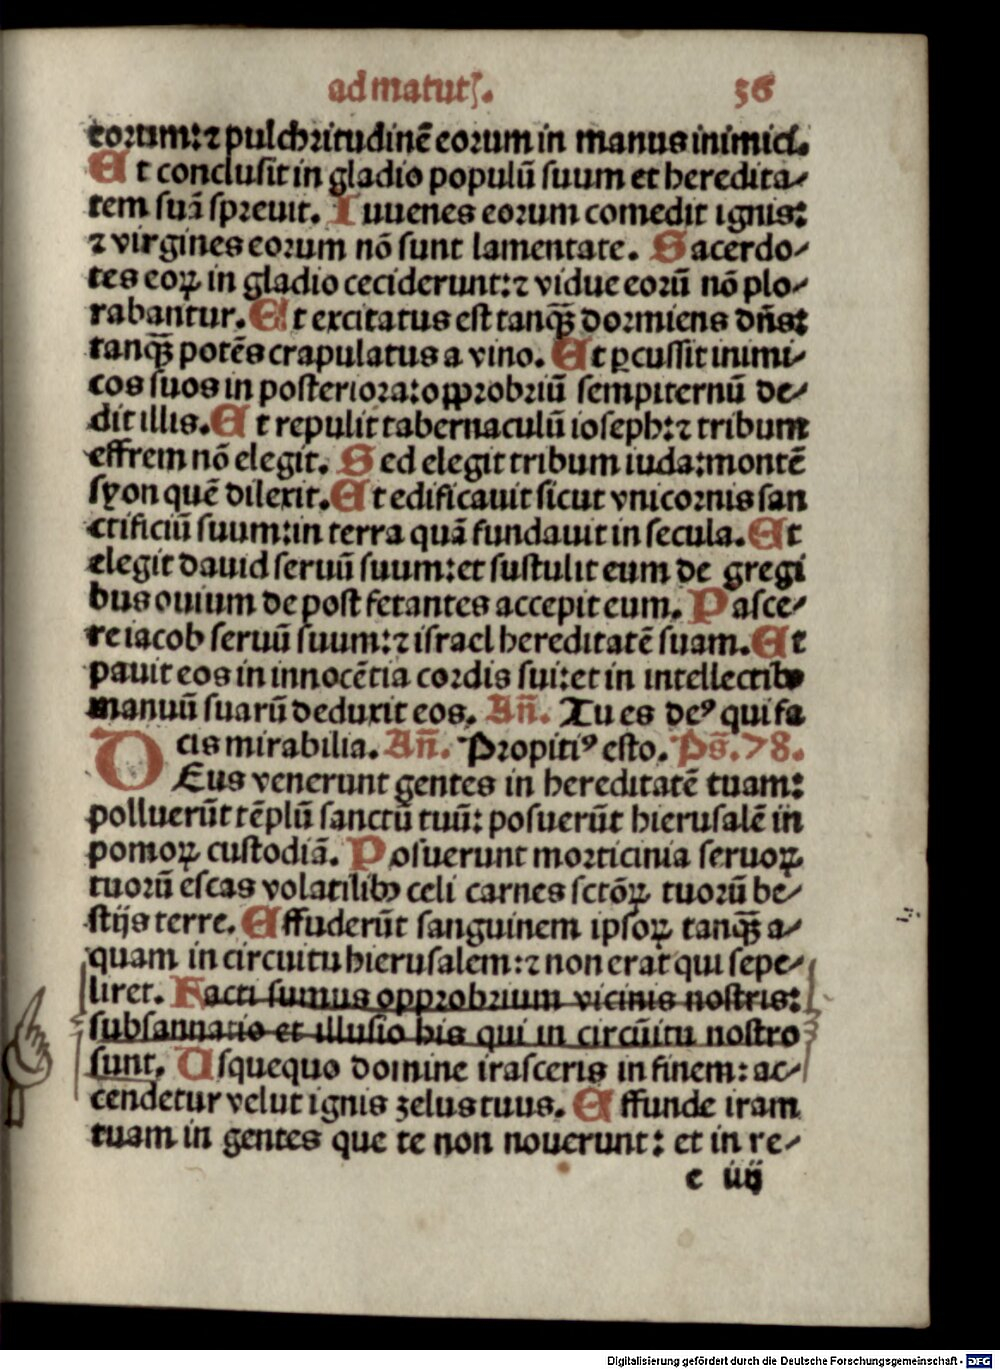 ad matutꝭ. 36
eorum:⁊ pulchritudinē eorum in manus inimici.
Et conclusit in gladio populū suum et heredita⸗
tem suā spreuit. Iuuenes eorum comedit ignis:
⁊ virgines eorum nō sunt lamentate. Sacerdo⸗
tes eoꝝ in gladio ceciderunt:⁊ vidue eorū nō plo⸗
rabantur. Et excitatus est tanqȝ̄ dormiens dn̄s:
tanqȝ̄ potēs crapulatus a vino. Et ꝑcussit inimi⸗
cos suos in posteriora:opprobriū sempiternū de⸗
dit illis. Et repulit tabernaculū ioseph:⁊ tribum
effrem nō elegit. Sed elegit tribum iuda:montē
syon quē dilexit. Et edificauit sicut vnicornis san
ctificiū suum:in terra quā fundauit in secula. Et
elegit dauid seruū suum:et sustulit eum de gregi
bus ouium de post fetantes accepit eum. Pasce⸗
re iacob seruū suum:⁊ israel hereditatē suam. Et
pauit eos in innocētia cordis sui:et in intellectibꝰ
manuū suarū deduxit eos. An̄. Tu es deꝰ qui fa
cis mirabilia. An̄. Propitiꝰ esto. Ps̄. 78.
DEus venerunt gentes in hereditatē tuam:
polluerūt tēplū sanctū tuū: posuerūt hierusalē in
pomoꝝ custodiā. Posuerunt morticinia seruoꝝ
tuorū escas volatilibȝ celi carnes sctōꝝ tuorū be⸗
stijs terre. Effuderūt sanguinem ipsoꝝ tanqȝ̄ a⸗
quam in circuitu hierusalem:⁊ non erat qui sepe⸗
liret. Facti sumus opprobrium vicinis nostris:
subsannatio et illusio his qui in circūitu nostro
sunt. Usquequo domine irasceris in finem: ac⸗
cendetur velut ignis zelus tuus. Effunde iram
tuam in gentes que te non nouerunt: et in re⸗
e iiij
Digitalisierung gefördert durch die Deutsche Forschungsgemeinschaft - DFG